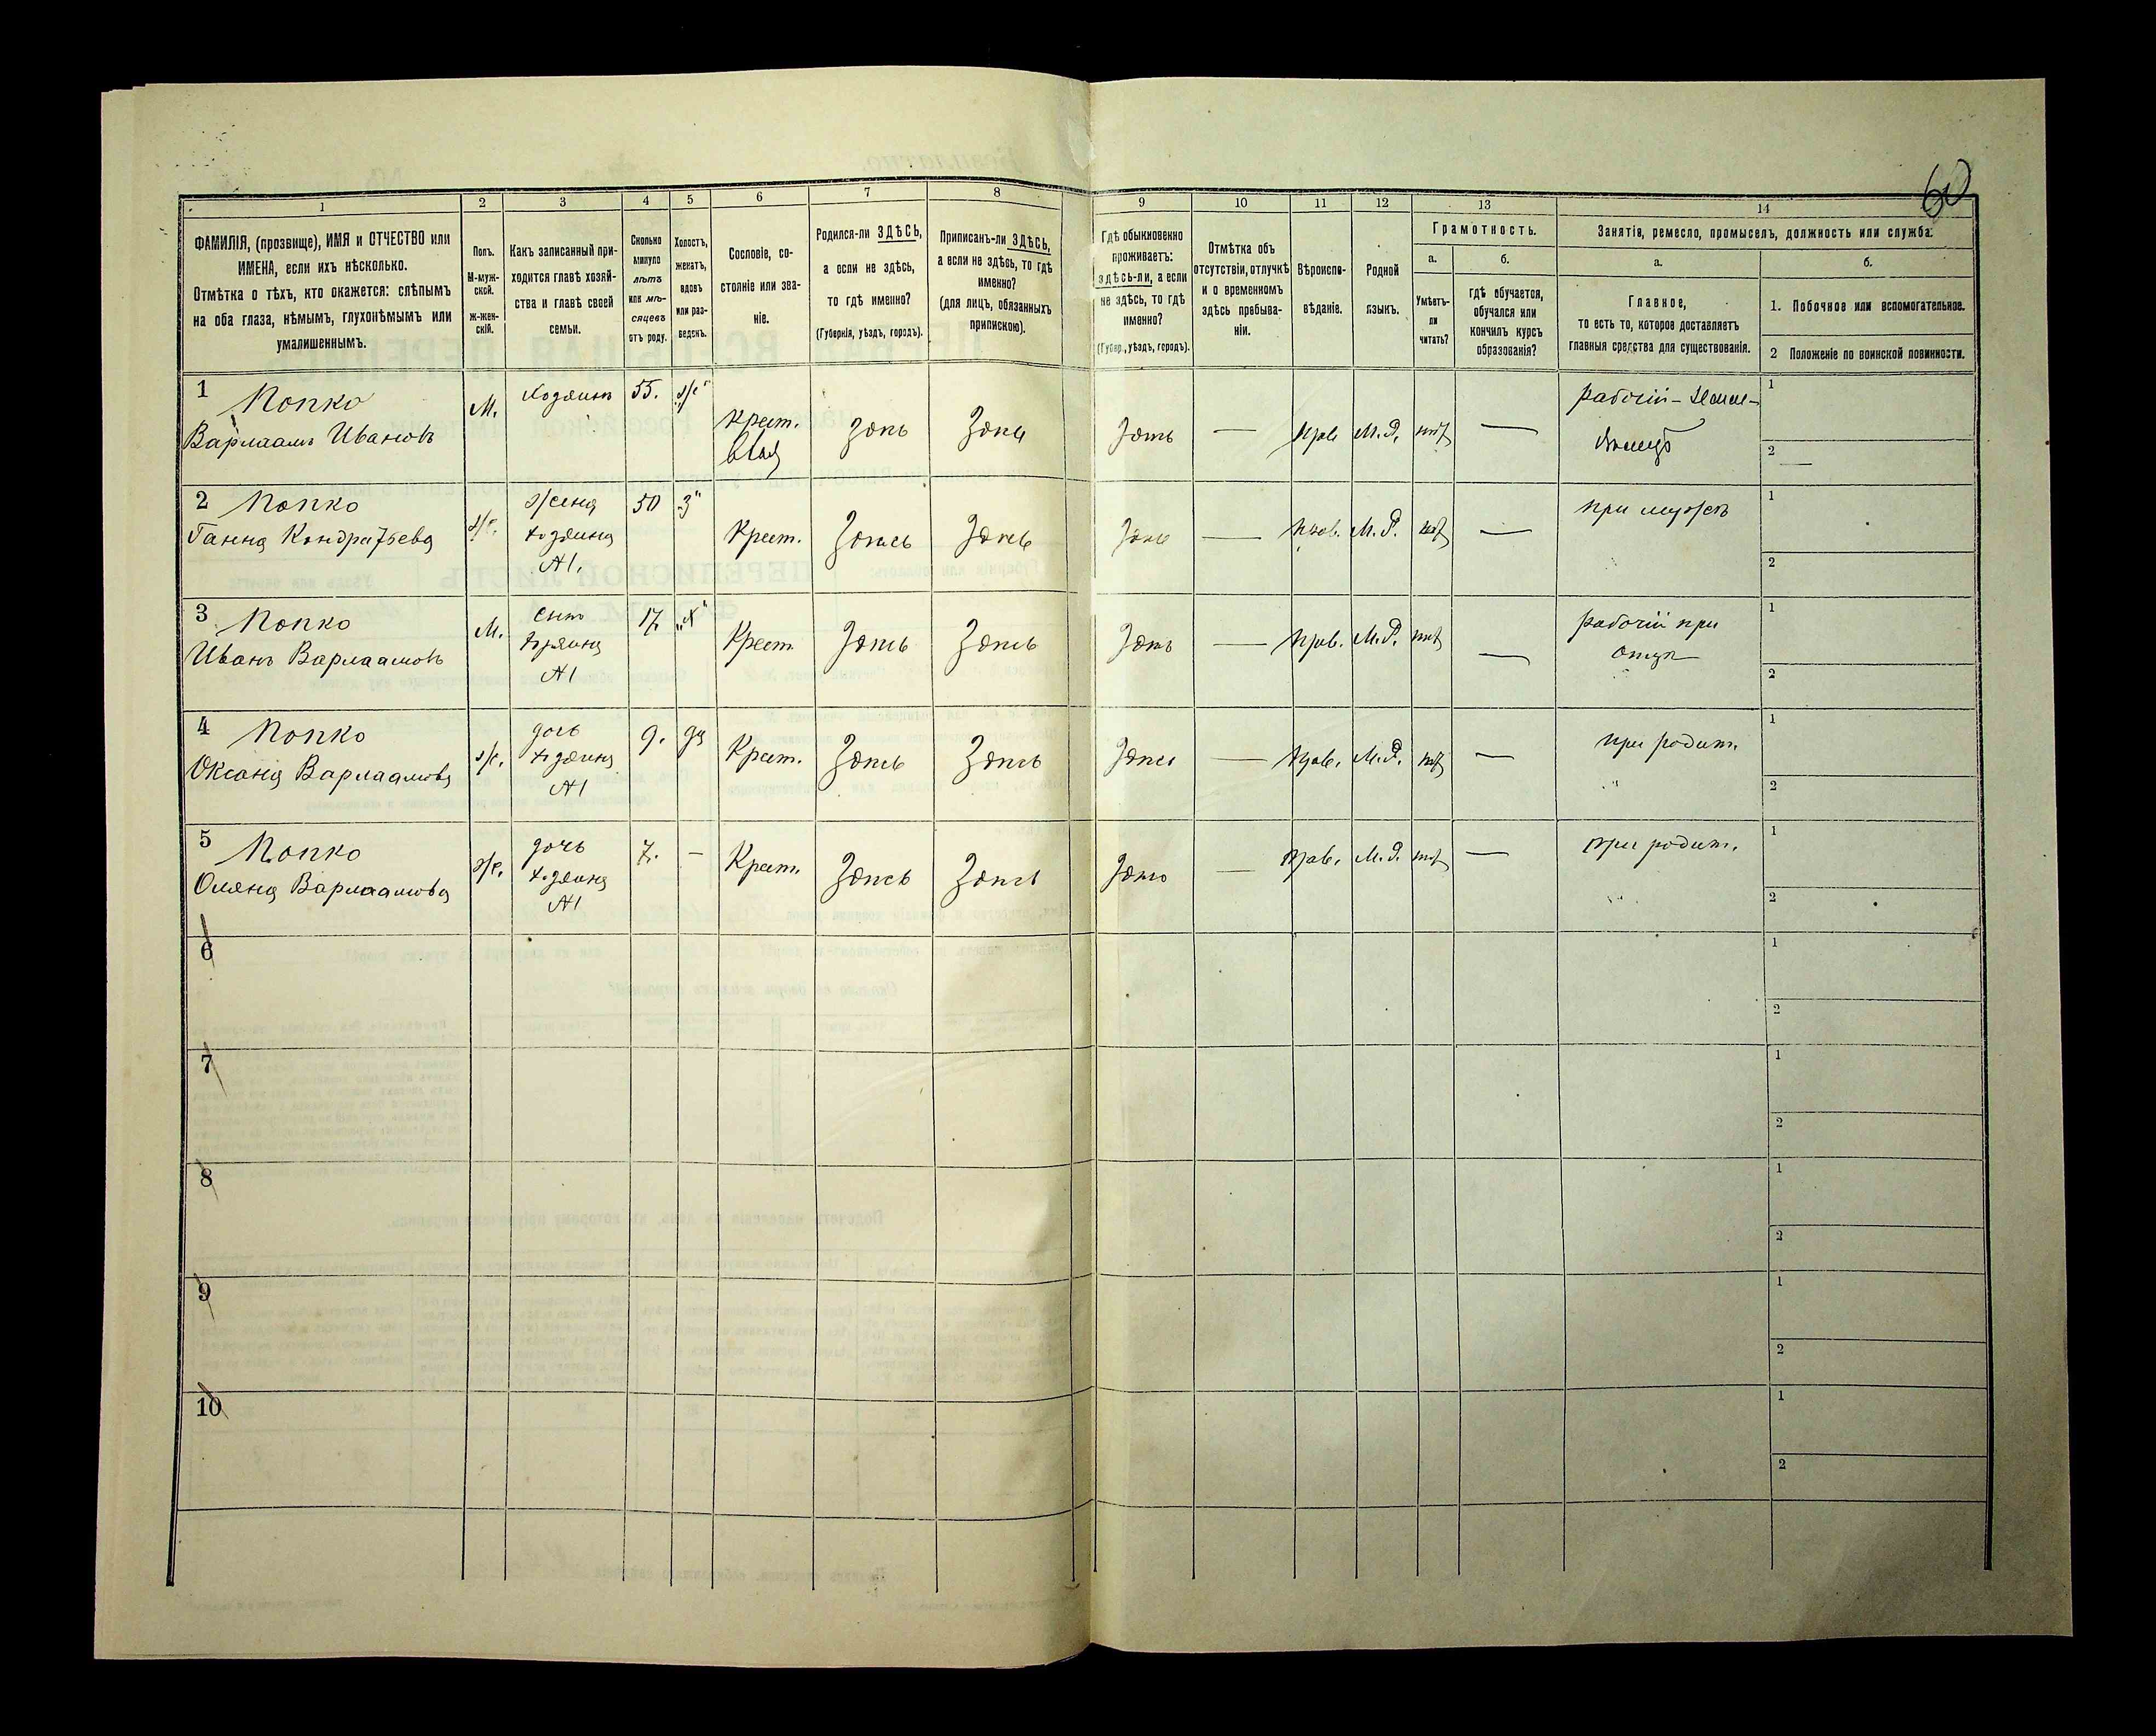 60
1
2
3
4
5
6
7
8
9
10
11
12
13
14
ФАМИЛІЯ, (прозвище), ИМЯ и ОТЧЕСТВО или
ИМЕНА, если ихъ нѣсколько.
Отмѣтка о тѣхъ, кто окажется: слѣпымъ
на оба глаза, нѣмымъ, глухонѣмымъ или
умалишеннымъ.
Полъ.
М-муж-
ской.
ж-жен-
скій.
Какъ записанный при-
ходится главѣ хозяй-
ства и главѣ своей
семьи.
Сколько
минуло
лѣтъ
или мѣ-
сяцевъ
отъ роду.
Холостъ,
женатъ,
вдовъ
или раз-
веденъ.
Сословіе, со-
стояніе или зва-
ніе.
Родился-ли ЗДѢСЬ,
а если не здѣсь,
то гдѣ именно?
(Губернія, уѣздъ, городъ).
Приписанъ-ли ЗДѢСЬ,
а если не здѣсь, то гдѣ
именно?
(для лицъ, обязанныхъ
припискою).
Гдѣ обыкновенно
проживаетъ:
здѣсь-ли, а если
не здѣсь, то гдѣ
именно?
(Губер., уѣздъ, городъ).
Отмѣтка объ
отсутствіи, отлучкѣ
и о временномъ
здѣсь пребыва-
ніи.
Вѣроиспо-
вѣданіе.
Родной
языкъ.
Грамотность.
а.
Умѣетъ-
ли
читать?
б.
гдѣ обучается,
обучался или
кончилъ курсъ
образованія?
Занятія, ремесло, промыселъ, должность или служба.
а.
Главное,
то есть то, которое доставляетъ
главныя средства для существованія.
б.
1. Побочное или вспомогательное.
2 Положеніе по воинской повинности.
1 Попко
Варлаамъ Ивановъ
М.
Хозяинъ
55.
ж
Крест.
влад
Здѣсь
Здѣсь
Здѣсь
—
Прав
М.Р.
нѣт
—
рабочій - Земле-
1
2
—
2 Попко
Ганна Кондратьева
ж.
жена
хозяина
№1.
50
З
Крест.
Здѣсь
Здѣсь
Здѣсь
—
Прав.
М.Р.
нѣт
—
при мужѣ
1
2
3 Попко
Иванъ Варлаамовъ
М.
сынъ
хозяина
№1
17.
"х"
Крест.
Здѣсь
Здѣсь
Здѣсь
—
Прав.
М.Р.
нѣт
—
рабочій при
отцѣ
1
2
4 Попко
Оксана Варлаамова
ж.
дочь
хозяина
№1
9.
Крест.
Здѣсь
Здѣсь
Здѣсь
—
Прав.
М.Р.
нѣт
—
при родит.
1
2
5 Попко
Оляна Варлаамова
ж.
дочь
хозяина
№1
7.
—
Крест.
Здѣсь
Здѣсь
Здѣсь
—
Прав.
М.Р.
нѣт
—
при родит.
1
2
6
1
2
7
1
2
8
1
2
9
1
2
10
1
2